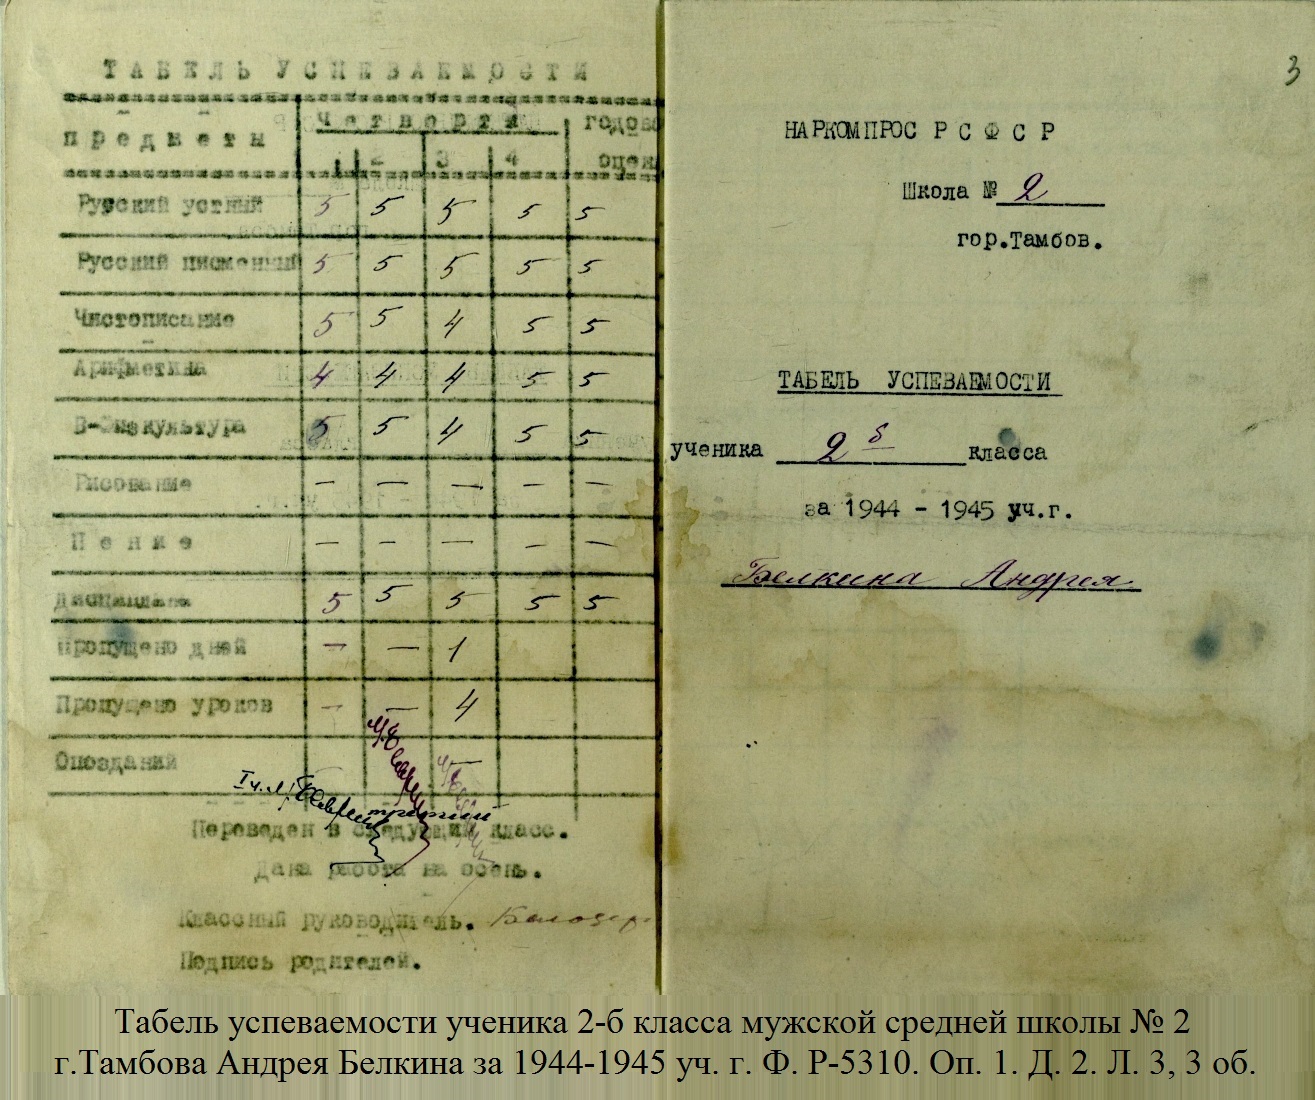 ТАБЕЛЬ УСПЕВАЕМОСТИ
предметы четверти годов
1 2 3 4 оцен
Русский устный 5 5 5 5 5
Русский писменный 5 5 5 5 5
Чистописание 5 5 4 5 5
Арифметика 4 4 4 5 5
В-Физкультура 5 5 4 5 5
Рисование — — — — —
Пение — — — — —
Дисциплина 5 5 5 5 5
Пропущено дней — — 1
Пропущено уроков — — 4
Опозданий —
третий
Переведен в следующий класс.
Дана работа на осень.
Классный руководитель.
Подпись родителей.
3
НАРКОМПРОС РСФСР
Школа № 2
гор.Тамбов.
ТАБЕЛЬ УСПЕВАЕМОСТИ
ученика 2 б класса
за 1944 - 1945 уч.г.
Белкина Андрея
Табель успеваемости ученика 2-б класса мужской средней школы № 2
г.Тамбова Андрея Белкина за 1944-1945 уч. г. Ф. Р-5310. Оп. 1. Д. 2. Л. 3, 3 об.